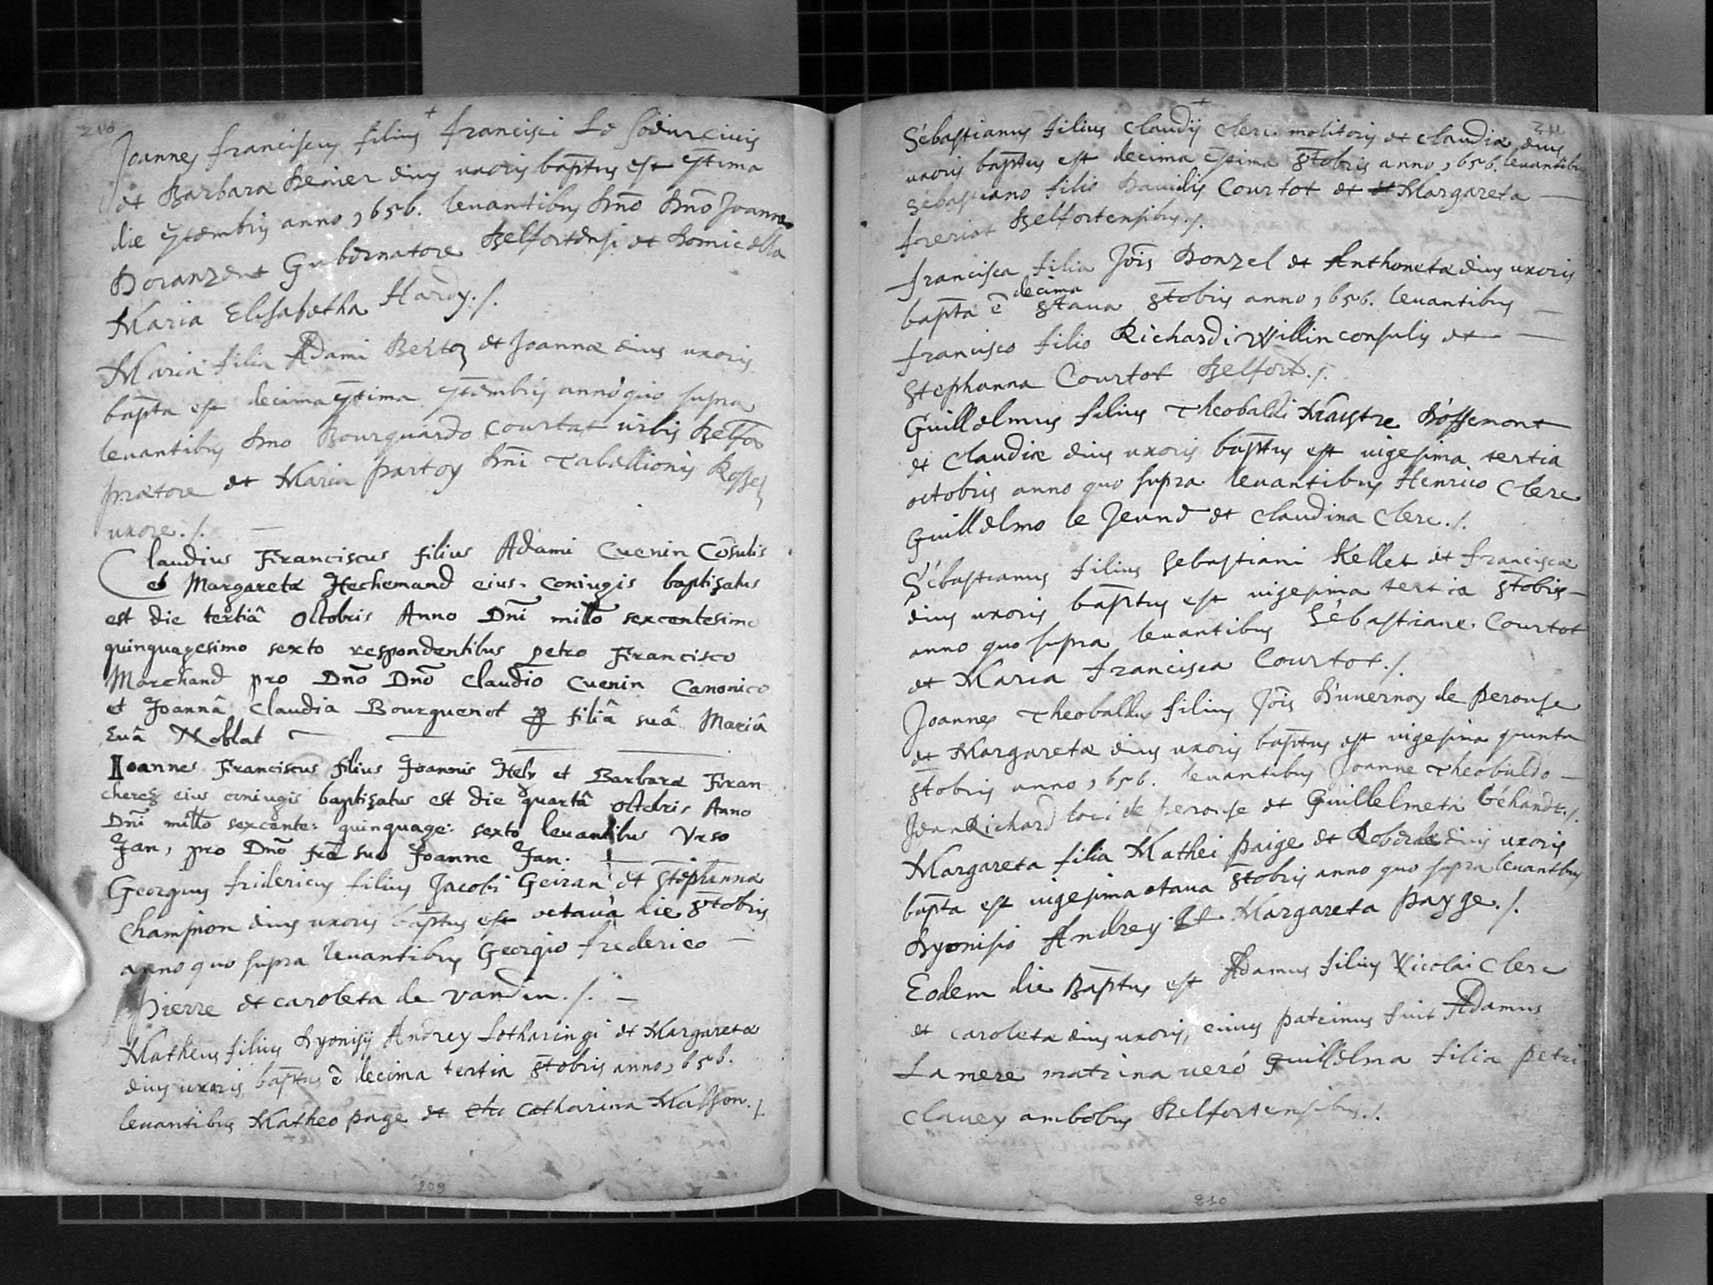 210
Joannes franciscus filius francisci Le civis
et Barbara eius uxoris bap̄tus est 7tima
die 7tembris anno 1656. levantibus Dn̄o Dn̄o Joanne
Gubernatore Belfortensi et Domicella
Maria Elisabetha Hardy ./.
Maria filia Adami Bertoz et Joannæ eius uxoris
bap̄ta est decima 7tima 7tembris anno quo supra
levantibus Dn̄o Bourquardo Courtat urbis Belfor
prætore et Maria Dn̄i Tabellionis
uxore ./.
Claudius Franciscus filius Adami Cuenin Cōsulis
et Margaretæ Hechemand eius coniugis baptizatus
est die tertiâ Octobris Anno Dn̄i mill̄o sexcentesimo
quinquagesimo sexto respondentibus petro Francisco
Marchand pro Dn̄o Dn̄o Claudio Cuenin Canonico
et Joannâ Claudia Bourquenot filiâ suâ Mariâ
Evâ Noblat
Ioannes Franciscus filius Joannis Hely et Barbaræ Fran
cherez eius coniugis baptizatus est die quartâ octobris Anno
Dn̄i mill̄o sexcente: quinquage: sexto levantibus Urso
Jan, pro Dn̄o fr̄e suo Joanne Jan.
Georgius fridericus filius Jacobi Geiran et Steph̄anna
Champion eius uxoris bap̄tus est octava die 8tobris
anno quo supra levantibus Georgio frederico
Pierre et caroleta de Vandin ./.
Matheus filius Dyonisij Andrey Lotharingi et Margaretæ
eius uxoris bap̄tus ē decima tertia 8tobris anno 1656.
levantibus Matheo page et Catharina Masson ./.
209
211
Sébastianus filius Claudij Clerc molitoris et Claudiæ eius
uxoris bap̄tus est decima 8tobris anno 1656. levantibus
Sebastiano filio Davidis Courtot et Margareta
foreriot Belfortensibus ./.
francisca filia Jōis Donzel et Anthonetæ eius uxoris
decima
bap̄ta ē 8tava 8tobris anno 1656. levantibus
francisco filio Richardi Willin consulis et
Stephanna Courtot Belfort ./.
Guillelmus filius Theobaldi Maistre D'offemont
et Claudiæ eius uxoris bap̄tus est vigesima tertia
octobris anno quo supra levantibus Henrico Clerc
Guillelmo le Jeune et Claudina Clerc ./.
Sébastianus filius Sebastiani Kellet et franciscæ
eius uxoris bap̄tus est vigesima tertia 8tobris
anno quo supra levantibus Sébastiane Courtot
et Maria francisca Courtot ./.
Joannes Theobaldus filius Jōis D'uvernoy de perouse
et Margaretæ eius uxoris bap̄tus est vigesima quinta
8tobris anno 1656. levantibus Joanne Theobaldo
Jean Richard loci de perouse et Guillelmeta Géhandt ./.
Margareta filia Mathei paige et eius uxoris
bap̄ta est vigesima otava 8tobris anno quo supra levantibus
Dyonisio Andrey et Margareta payge ./.
Eodem die Bap̄tus est Adamus filius Nicolai Clerc
et caroletæ eius uxoris, eius patrinus fuit Adamus
Lamere matrina veró guillelma filia petri
Clavey ambobus Belfortensibus ./.
210